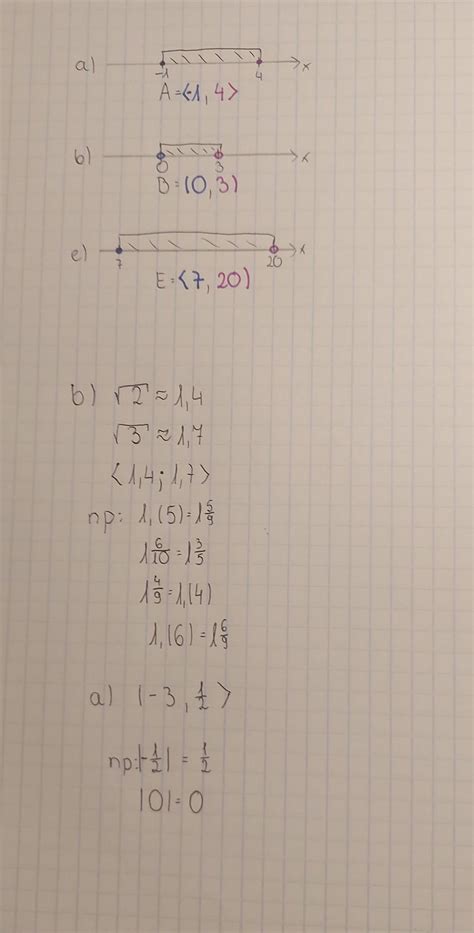 a) -1 4 x
A=⟨-1, 4⟩
b) 0 3 x
B=(0, 3)
e) 7 20 x
E=⟨7, 20)
b) √2 ≈ 1,4
√3 ≈ 1,7
⟨1,4 ; 1,7⟩
np: 1,(5)=1 5/9
1 6/10 = 1 3/5
1 4/9 = 1,(4)
1,(6) = 1 6/9
a) (-3, 1/2⟩
np: |-1/2| = 1/2
|0| = 0